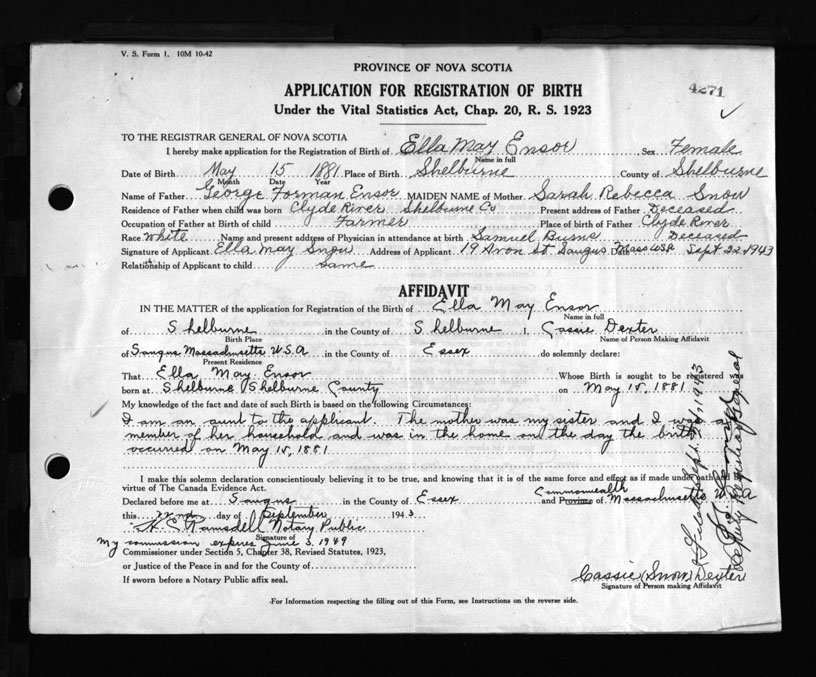 V. S. Form 1. 10M 10-42
PROVINCE OF NOVA SCOTIA
APPLICATION FOR REGISTRATION OF BIRTH
4271
Under the Vital Statistics Act, Chap. 20, R. S. 1923
TO THE REGISTRAR GENERAL OF NOVA SCOTIA
I hereby make application for the Registration of Birth of Ella May Ensor Sex Female
Name in full
Date of Birth May 15 1881 Place of Birth Shelburne County of Shelburne
Month Date Year
Name of Father George Forman Ensor MAIDEN NAME of Mother Sarah Rebecca Snow
Residence of Father when child was born Clyde River Shelburne Co Present address of Father Deceased
Occupation of Father at Birth of child Farmer Place of birth of Father Clyde River
Race White Name and present address of Physician in attendance at birth Samuel Burns Deceased
Signature of Applicant Ella May Snow Address of Applicant 19 Iron St Saugus Mass USA Date Sept 22 1943
Relationship of Applicant to child Same
AFFIDAVIT
IN THE MATTER of the application for Registration of the Birth of Ella May Ensor
Name in full
of Shelburne in the County of Shelburne I, Cassie Dexter
Birth Place Name of Person Making Affidavit
of Saugus Massachusetts U.S.A in the County of Essex do solemnly declare:
Present Residence
That Ella May Ensor Whose Birth is sought to be registered was
born at Shelburne Shelburne County on May 15, 1881
My knowledge of the fact and date of such Birth is based on the following Circumstances:
I am an aunt to the applicant. The mother was my sister and I was a
member of her household and was in the home on the day the birth
occurred on May 15, 1881
I make this solemn declaration conscientiously believing it to be true, and knowing that it is of the same force and effect as if made under oath and
virtue of The Canada Evidence Act.
Commonwealth
Declared before me at Saugus in the County of Essex and Province of Massachusetts U S A
this 22nd day of September 1943
H. C. Ramsdell Notary Public
Signature of
My commission expires June 3, 1949
Commissioner under Section 5, Chapter 38, Revised Statutes, 1923,
or Justice of the Peace in and for the County of
If sworn before a Notary Public affix seal.
Cassie (Snow) Dexter
Signature of Person making Affidavit
For Information respecting the filling out of this Form, see Instructions on the reverse side.
Filed Sept. 1943
Deputy Registrar General